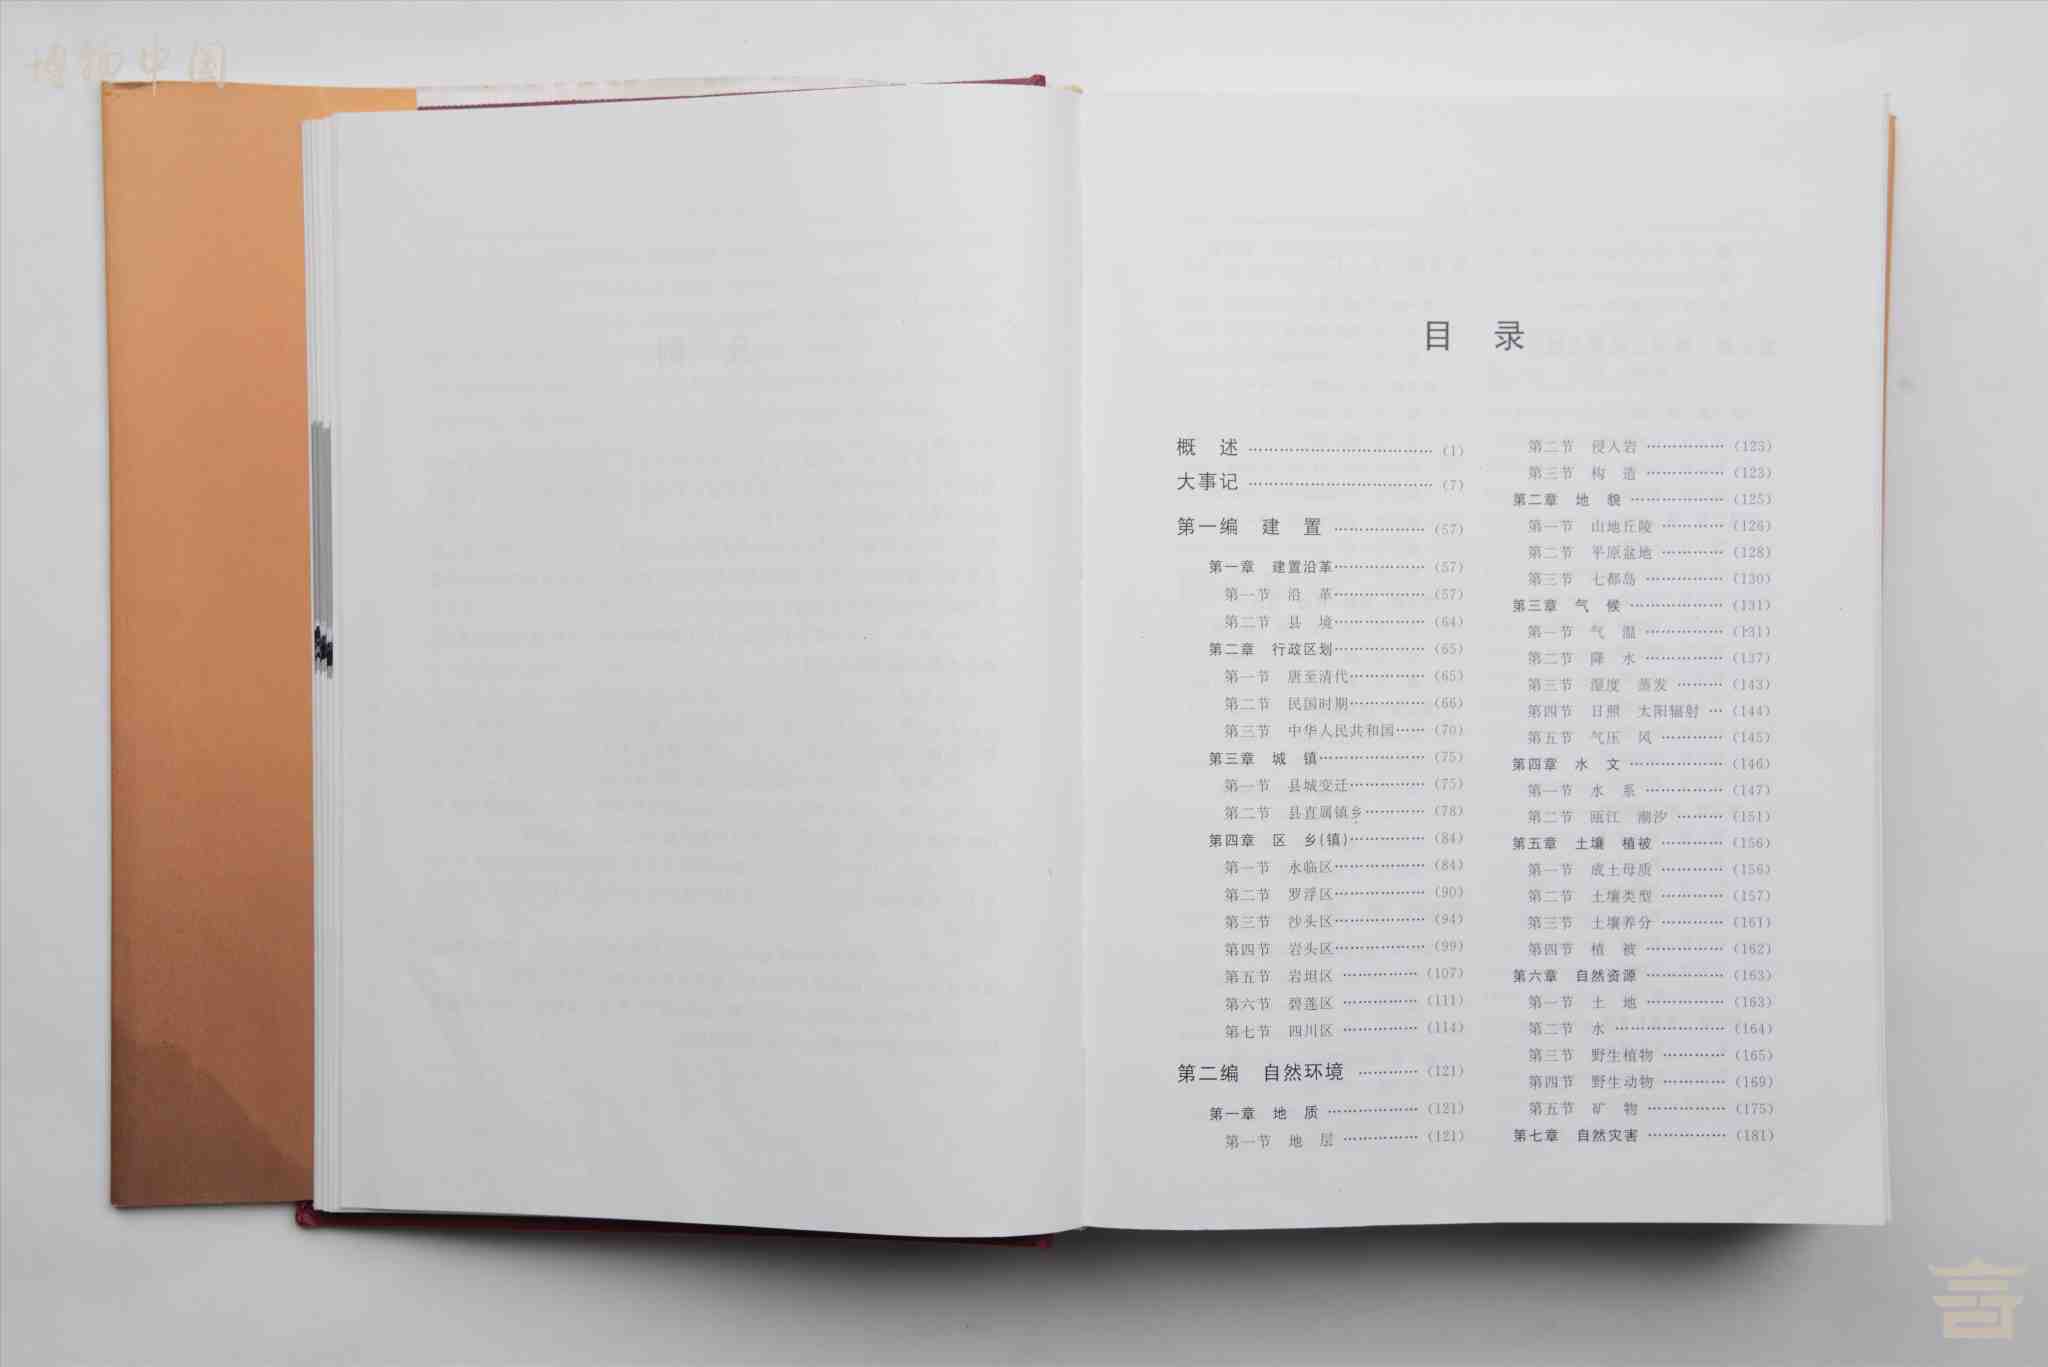 博物中国
目 录
概 述 ……………………………… (1)
大事记 ……………………………… (7)
第一编 建 置 ……………… (57)
第一章 建置沿革……………… (57)
第一节 沿 革……………… (57)
第二节 县 境……………… (64)
第二章 行政区划……………… (65)
第一节 唐至清代…………… (65)
第二节 民国时期…………… (66)
第三节 中华人民共和国…… (70)
第三章 城 镇………………… (75)
第一节 县城变迁…………… (75)
第二节 县直属镇乡………… (78)
第四章 区 乡(镇)…………… (84)
第一节 永临区……………… (84)
第二节 罗浮区……………… (90)
第三节 沙头区……………… (94)
第四节 岩头区……………… (99)
第五节 岩坦区 …………… (107)
第六节 碧莲区 …………… (111)
第七节 四川区 …………… (114)
第二编 自然环境 ………… (121)
第一章 地 质 ……………… (121)
第一节 地 层 …………… (121)
第二节 侵入岩 …………… (123)
第三节 构 造 …………… (123)
第二章 地 貌 ……………… (125)
第一节 山地丘陵 ………… (126)
第二节 平原盆地 ………… (128)
第三节 七都岛 …………… (130)
第三章 气 候 ……………… (131)
第一节 气 温 …………… (131)
第二节 降 水 …………… (137)
第三节 湿度 蒸发 ……… (143)
第四节 日照 太阳辐射 … (144)
第五节 气压 风 ………… (145)
第四章 水 文 ……………… (146)
第一节 水 系 …………… (147)
第二节 瓯江 潮汐 ……… (151)
第五章 土壤 植被 ………… (156)
第一节 成土母质 ………… (156)
第二节 土壤类型 ………… (157)
第三节 土壤养分 ………… (161)
第四节 植 被 …………… (162)
第六章 自然资源 …………… (163)
第一节 土 地 …………… (163)
第二节 水 ………………… (164)
第三节 野生植物 ………… (165)
第四节 野生动物 ………… (169)
第五节 矿 物 …………… (175)
第七章 自然灾害 …………… (181)